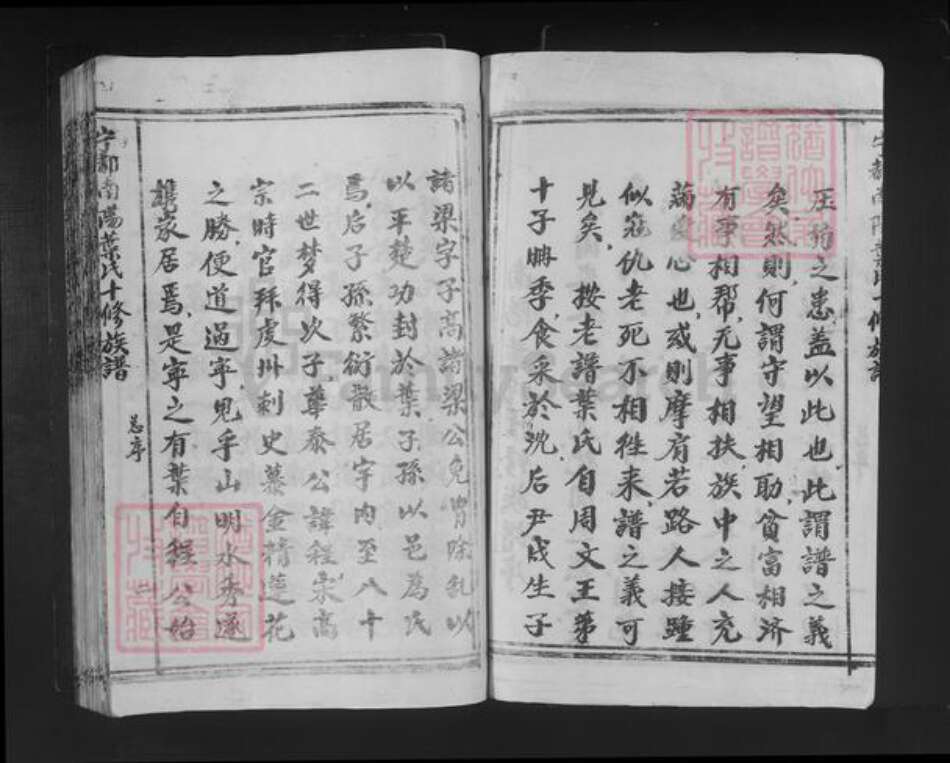 宁都南陽葉氏十修族譜
压綺之患盖以此也此謂譜之義
矣然則何謂守望相助貧富相济
有事相帮无事相扶族中之人充
蕩 心也或則摩肩若路人接踵
似寇仇老死不相往来譜之義可
見矣按老譜葉氏自周文王第
十子聃季食采於沈后尹戍生子
諸梁字子高諸梁公免胄除乱以
以平楚功封於葉子孫以邑為氏
焉后子孫繁衍散居宇内至八十
二世梦得次子 泰公諱程宋高
宗時官拜虔州刺史慕金精蓮花
之勝便道過寧見乎山明水秀遂
携家居焉是寧之有葉自程公始
宁都南陽葉氏十修族譜
总序